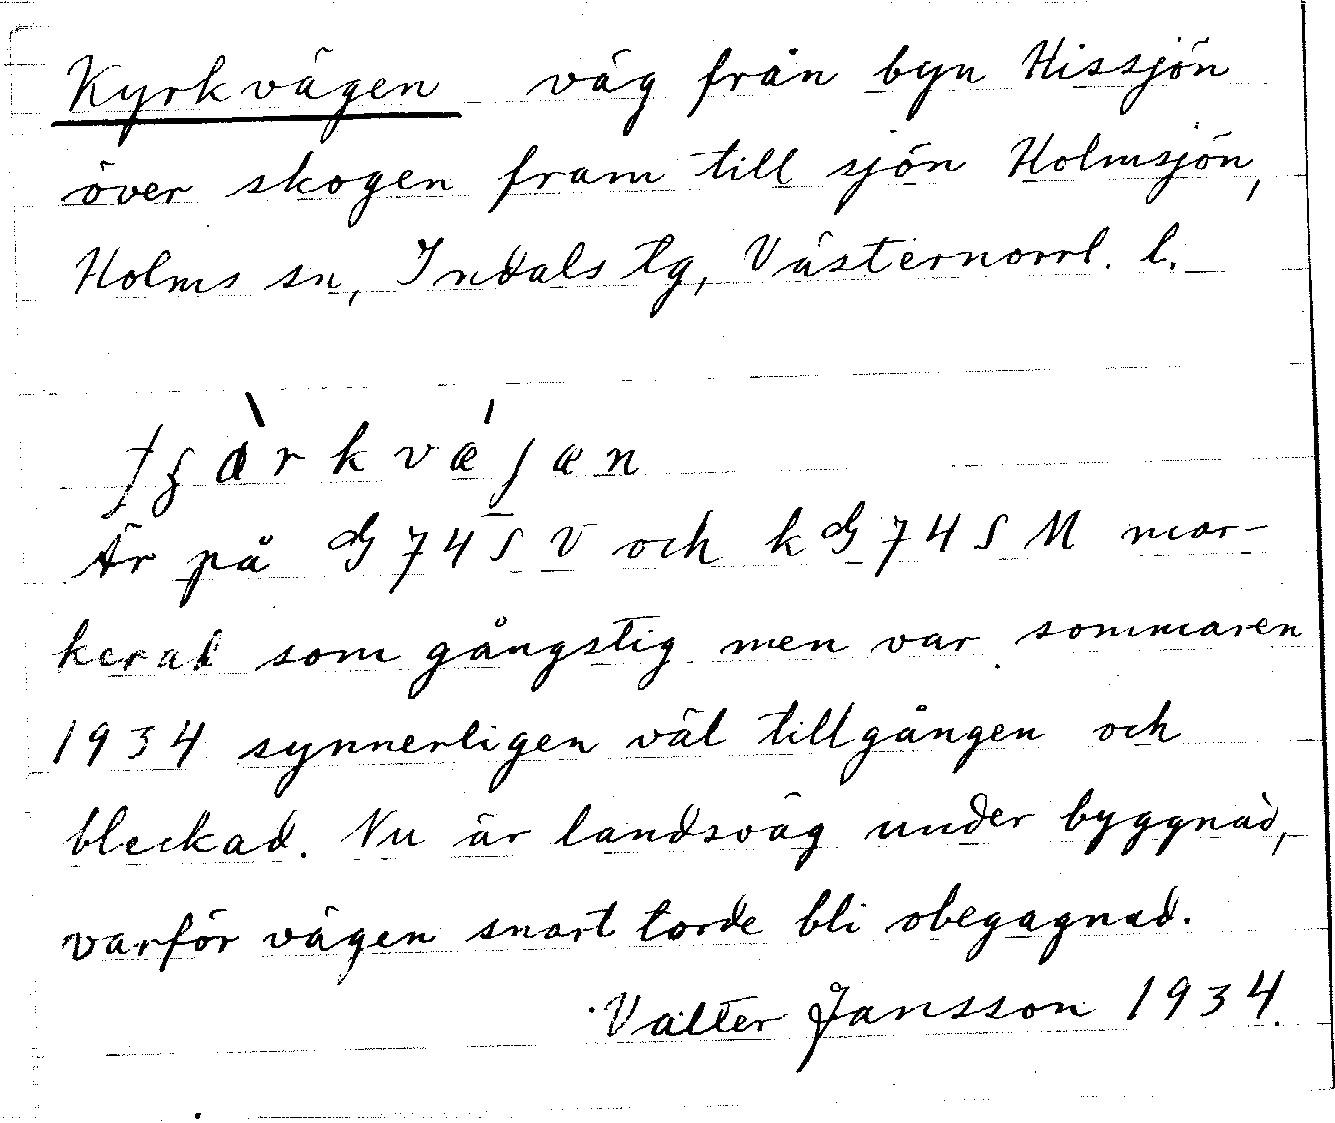 Kyrkvägen väg från byn Hissjön
över skogen fram till sjön Holmsjön,
Holms sn, Indals tg, Västernorrl. l.
Är på G74SV och kG74SM mar-
kerad som gångstig men var sommaren
1934 synnerligen väl tillgången och
bleckad. Nu är landsväg under byggnad,
varför vägen snart torde bli obegagnad.
Valter Jansson 1934.